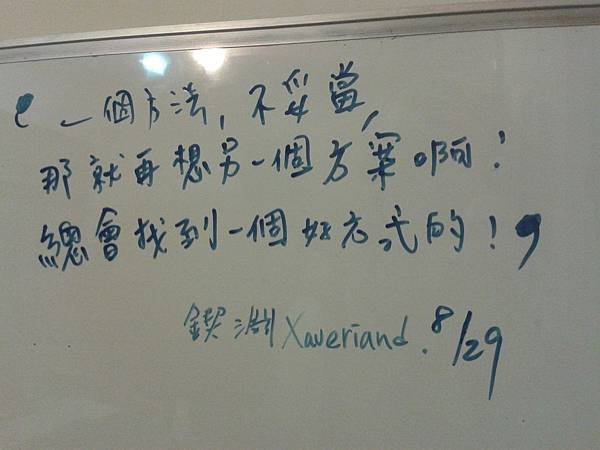 一個方法,不妥當,
那就再想另一個方案啊!
總會找到一個好方式的!
鍥澍Xaveriand. 8/29